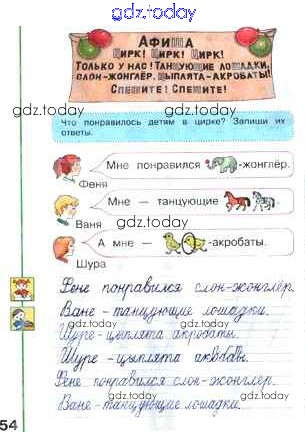 gdz.today
АФИША
ЦИРК! ЦИРК! ЦИРК!
ТОЛЬКО У НАС! ТАНЦУЮЩИЕ ЛОШАДКИ,
СЛОН-ЖОНГЛЁР, ЦЫПЛЯТА-АКРОБАТЫ!
СПЕШИТЕ! СПЕШИТЕ!
gdz.today gdz.today
Что понравилось детям в цирке? Запиши их
ответы.
gdz.today
Мне понравился -жонглёр.
Феня
gdz.today gdz.today
Мне — танцующие
Ваня
gdz.today
А мне — -акробаты.
Шура
gdz.today gdz.today
Фене понравился слон-жонглёр.
Ване - танцующие лошадки.
gdz.today
Шуре - цыплята акробаты.
Шуре - цыплята
gdz.today gdz.today
Фене понравился слон-жонглёр.
Ване - танцующие лошадки.
gdz.today
54